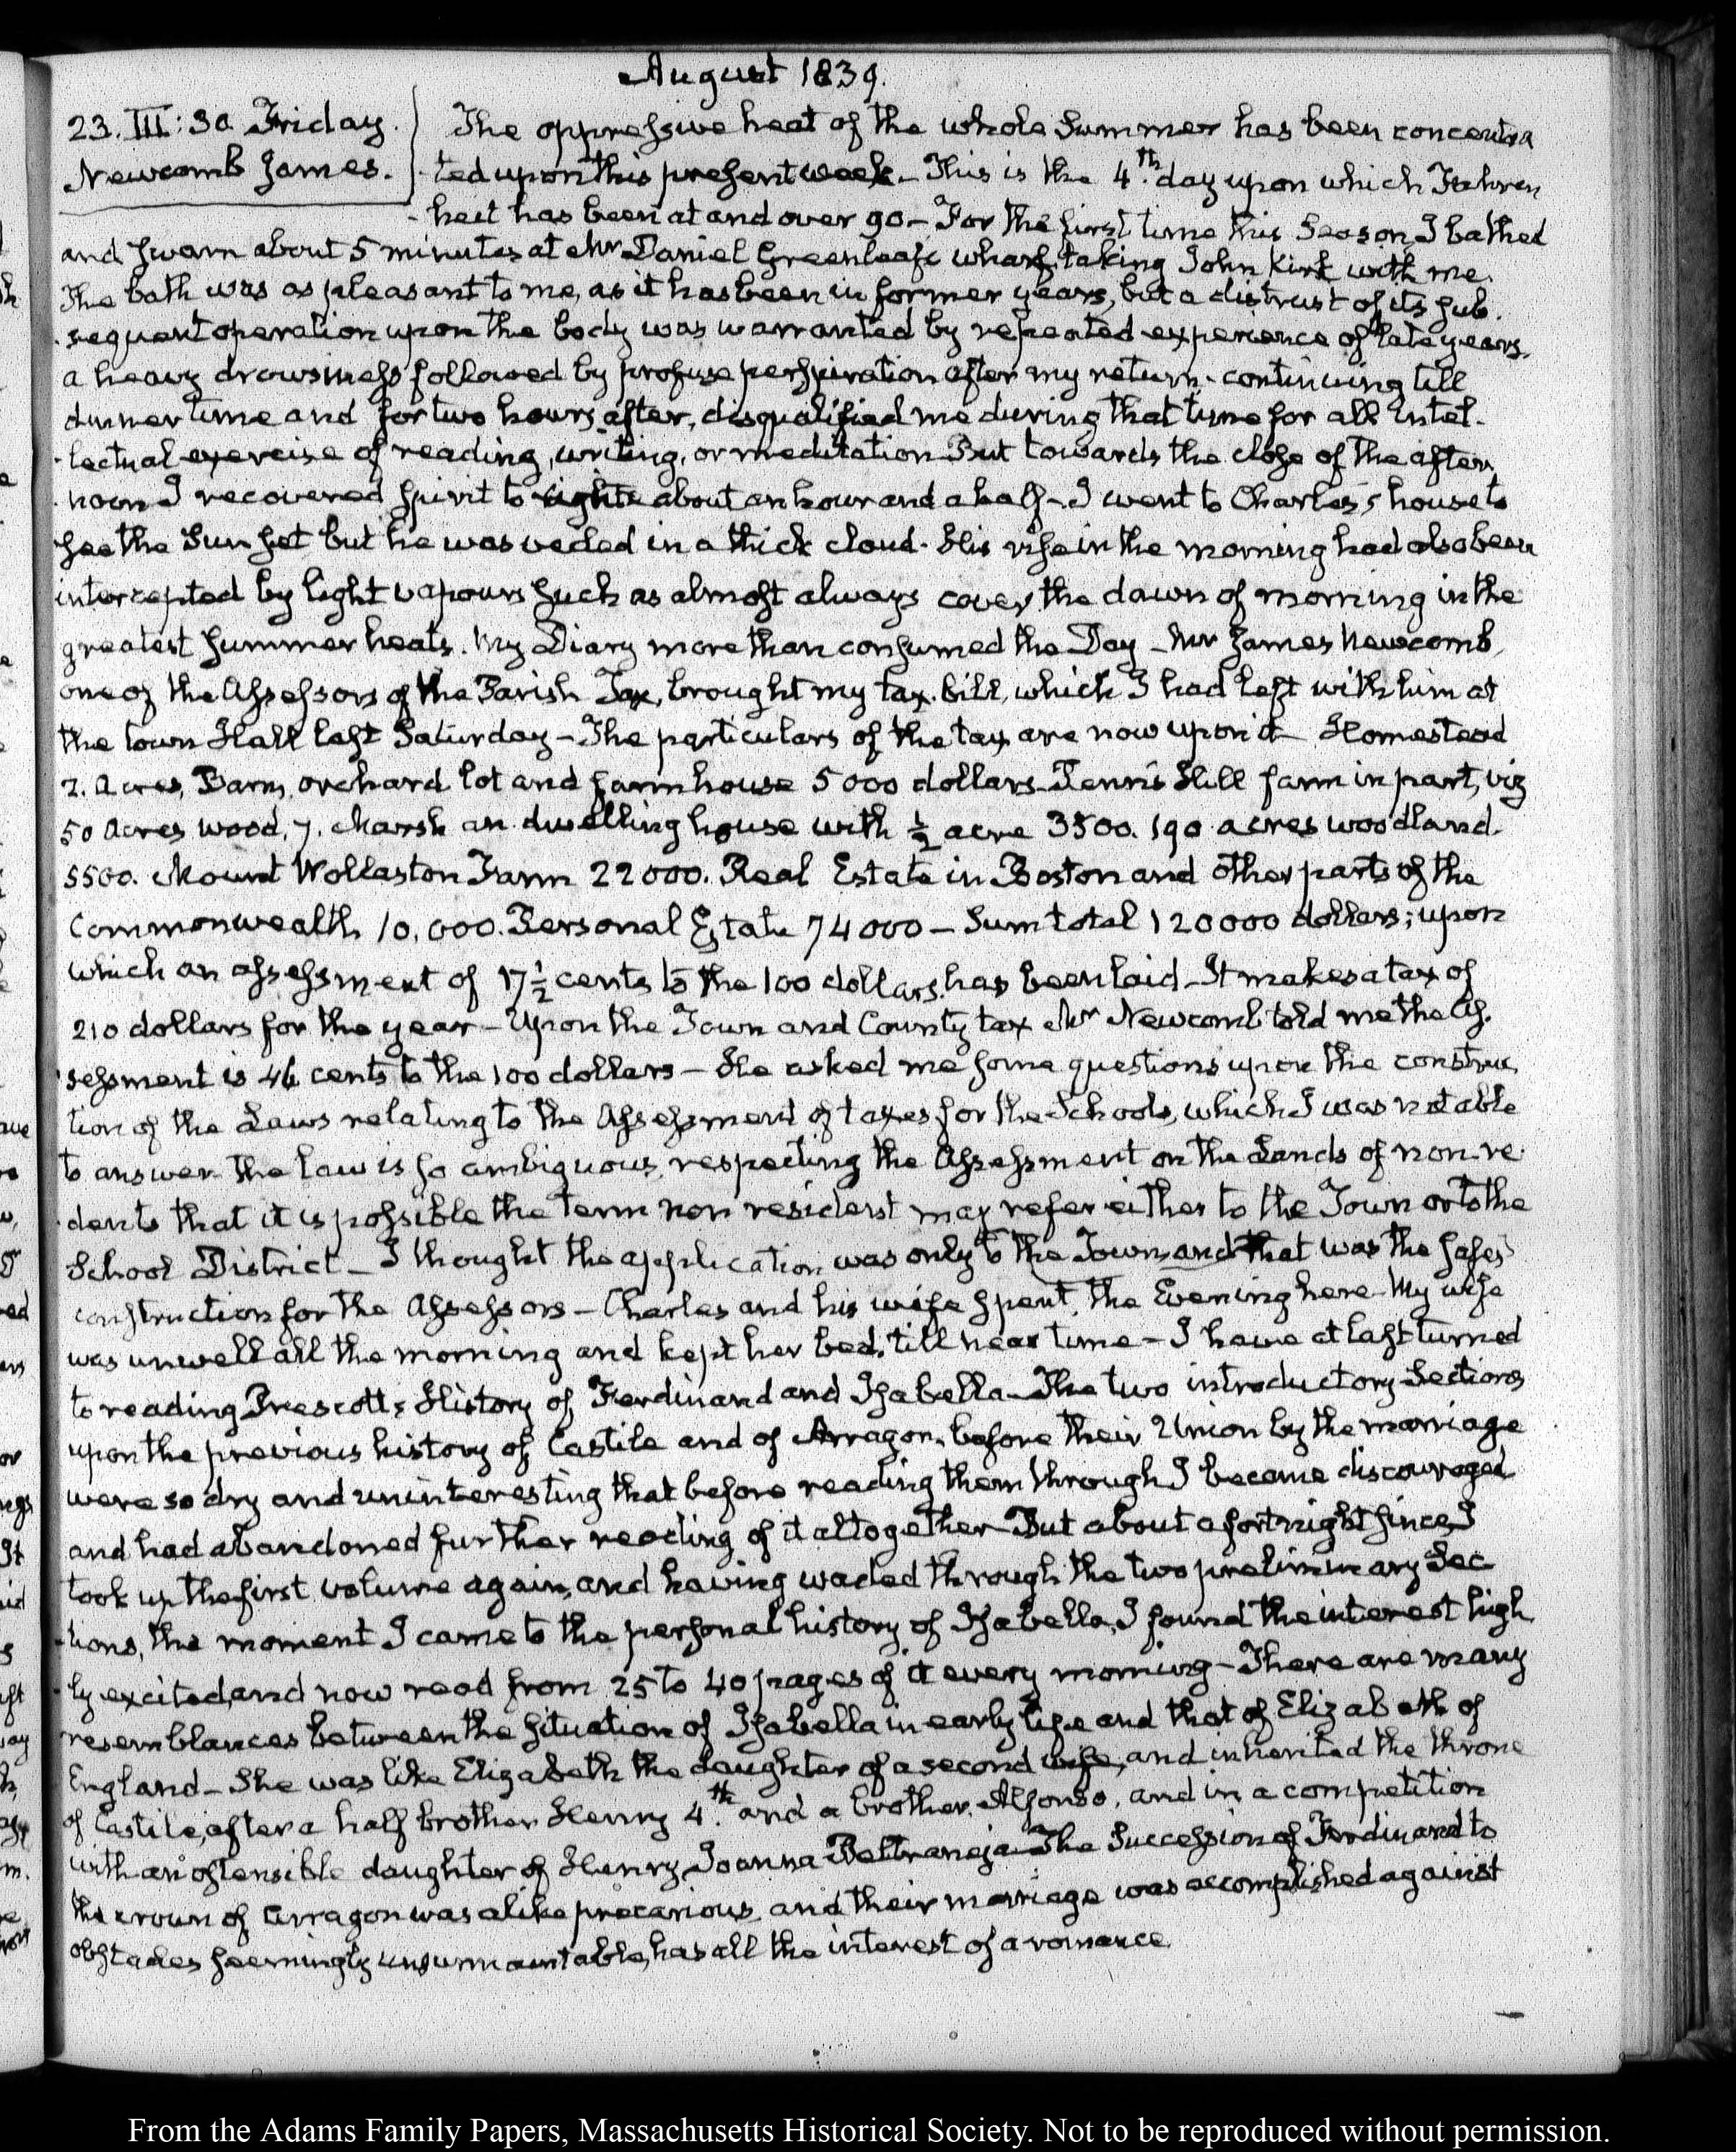 August 1839.
23. III:30 Friday.
Newcomb James.
The oppressive heat of the whole Summer has been concentra
-ted upon this present week - This is the 4th. day upon which Fahren
-heit has been at and over 90 - For the first time this Season I bathed
and swam about 5 minutes at Mr Daniel Greenleaf's wharf, taking John Kirk with me.
The bath was as pleasant to me, as it has been in former years, but a distrust of its sub.
-sequent operation upon the body was warranted by repeated experience of late years.
a heavy drowsiness followed by profuse perspiration after my return - continuing till
dinner time and for two hours after, disqualified me during that time for all Intel-
-lectual exercise of reading, writing, or meditation But towards the close of the after
-noon I recovered spirit to write about an hour and a half - I went to Charles's house to
see the Sun set but he was veiled in a thick cloud - His rise in the morning had also been
intercepted by light vapours such as almost always cover the dawn of morning in the
greatest summer heats. My Diary more than consumed the Day - Mr James Newcomb,
one of the Assessors of the Parish Tax, brought my tax bill, which I had left with him at
the town Hall last Saturday - The particulars of the tax are now upon it - Homestead
7. Acres, Barn, orchard lot and farmhouse 5000 dollars - Penn's Hill farm in part, viz
50 Acres wood, 7. Marsh an dwelling house with ½ acre 3500. 190 acres woodland.
5500. Mount Wollaston Farm 22000. Real Estate in Boston and other parts of the
Commonwealth 10,000. Personal Estate 74000 - Sum total 120000 dollars; upon
which an assessment of 17½ cents to the 100 dollars, has been laid - It makes a tax of
210 dollars for the year - Upon the Town and County tax Mr Newcomb told me the As.
-sessment is 46 cents to the 100 dollars - He asked me some questions upon the construc
tion of the Laws relating to the Assessment of taxes for the Schools, which I was not able
to answer - the law is so ambiguous, respecting the Assessment on the Lands of non-re
-dents that it is possible the term non resident may refer either to the Town or to the
School District - I thought the application was only to the Town and that was the safest
construction for the Assessors - Charles and his wife spent the Evening here - My wife
was unwell all the morning and kept her bed, till near time - I have at last turned
to reading Prescott's History of Ferdinand and Isabella - The two introductory Sections
upon the previous history of Castile and of Arragon, before their Union by the marriage
were so dry and uninteresting that before reading them through I became discouraged
and had abandoned further reading of it altogether - But about a fortnight since, I
took up the first volume again, and having waded through the two preliminary Sec
-tions, the moment I came to the personal history of Isabella, I found the interest high
-ly excited, and now read from 25 to 40 pages of it every morning - There are many
resemblances between the situation of Isabella in early life and that of Elizabeth of
England - She was like Elizabeth the daughter of a second wife, and inherited the throne
of Castile, after a half brother Henry 4th. and a brother, Alfonso, and in a competition
with an ostensible daughter of Henry, Joanna Beltraneja - The Succession of Ferdinand to
the crown of Arragon was alike precarious, and their marriage was accomplished against
obstacles seemingly unsurmountable, has all the interest of a romance.
From the Adams Family Papers, Massachusetts Historical Society. Not to be reproduced without permission.